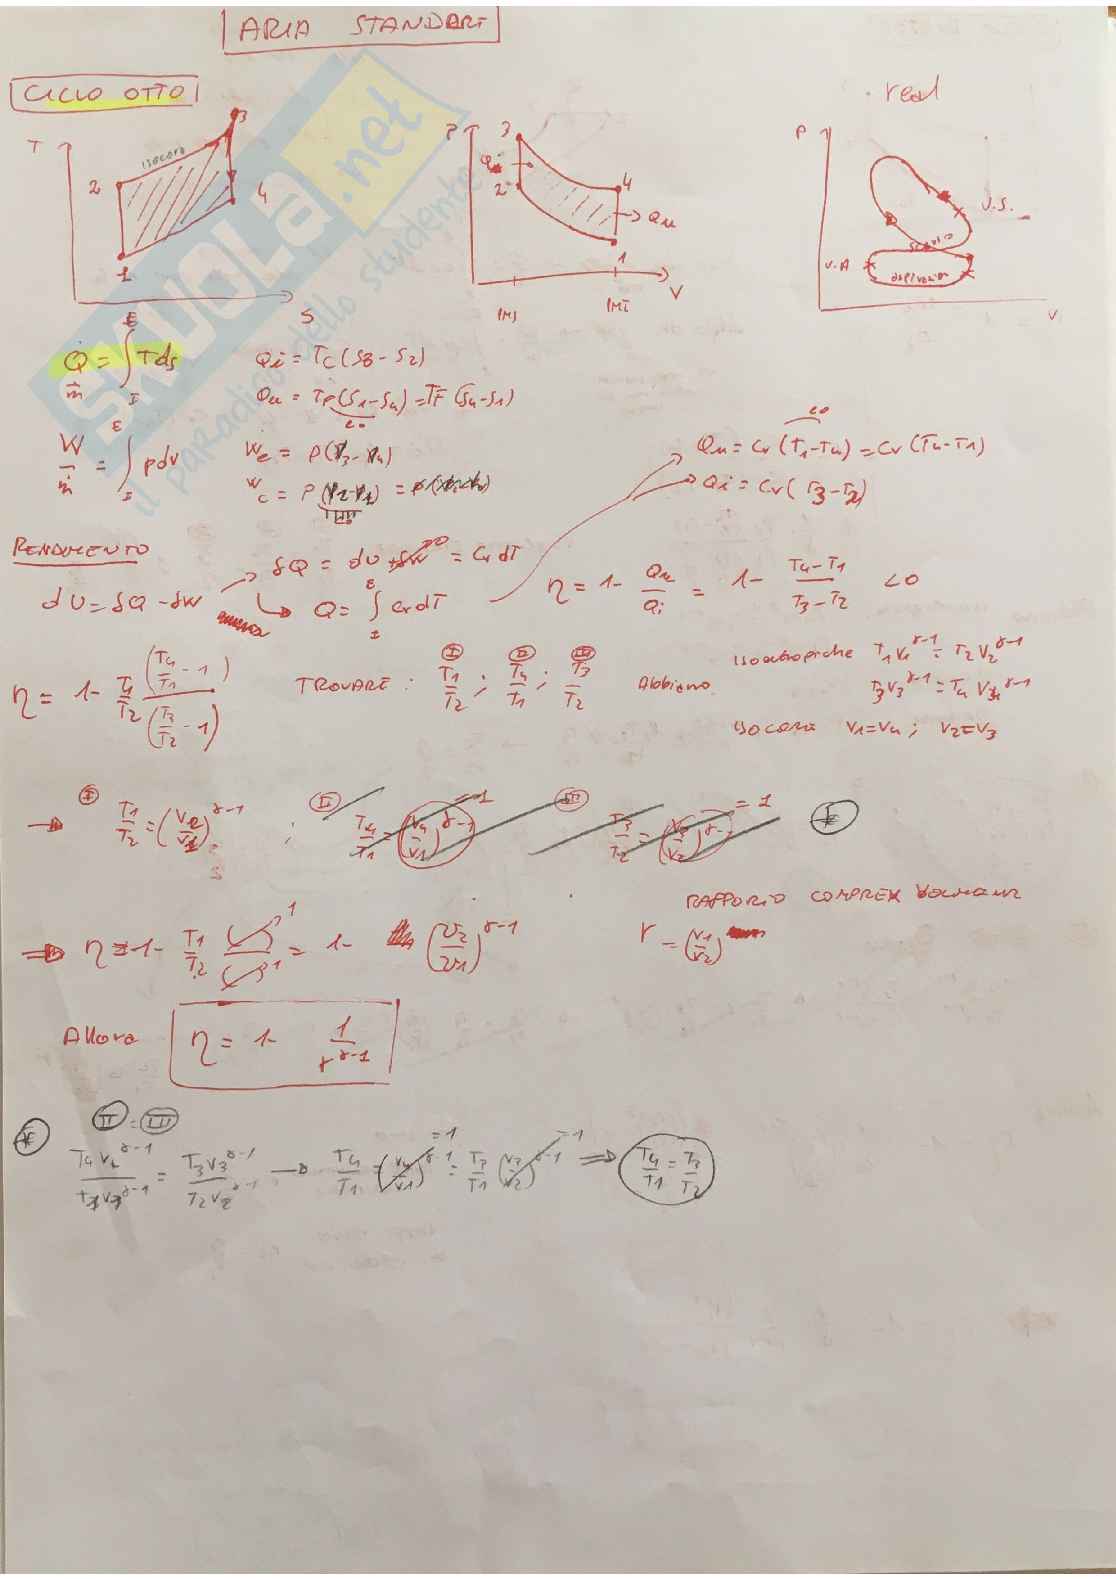 ARIA STANDART
CICLO OTTO
real
T
2
3
4
1
isocora
S
P
3
2
4
1
Qi
Qu
PMS
PMI
V
P
V.S.
scarico
V.A
aspirazione
V
SKUOLA.net
il paradiso dello studente
Q/m = ∫ Tds
Qi = Tc (S3 - S2)
Qu = TF (S1 - S4) = TF (S4 - S1)
<0
W/m = ∫ pdv
We = P(V3 - V4)
Wc = P(V2 - V1) =
Qu = Cv (T1 - T4) = Cv (T4 - T1)
<0
Qi = Cv ( T3 - T2)
RENDIMENTO
dU = δQ - δW
δQ = dU + δW = Cv dT
Q = ∫ Cv dT
η = 1 - Qu/Qi = 1 - (T4 - T1)/(T3 - T2) <0
η = 1 - T1/T2 (T4/T1 - 1)/(T3/T2 - 1)
TROVARE : I T1/T2 ; II T4/T1 ; III T3/T2
Abbiamo
Isoentropiche T1V1^γ-1 = T2V2^γ-1
T3V3^γ-1 = T4V4^γ-1
isocora V1=V4 ; V2=V3
→ I T1/T2 = (V2/V1)^γ-1 ; II T4/T1 = (V4/V1)^γ-1 = 1 III T3/T2 = (V3/V2)^γ-1 = 1 *
RAPPORTO COMPRESS VOLUMETR
r = (V1/V2)
⇒ η = 1 - T1/T2 = 1 - (V2/V1)^γ-1
Allora η = 1 - 1/r^γ-1
* II = III
T4V4^γ-1/T1V1^γ-1 = T3V3^γ-1/T2V2^γ-1 → T4/T1 = (V4/V1)^γ-1 = T3/T1 (V3/V2)^γ-1 ⇒ T4/T1 = T3/T2